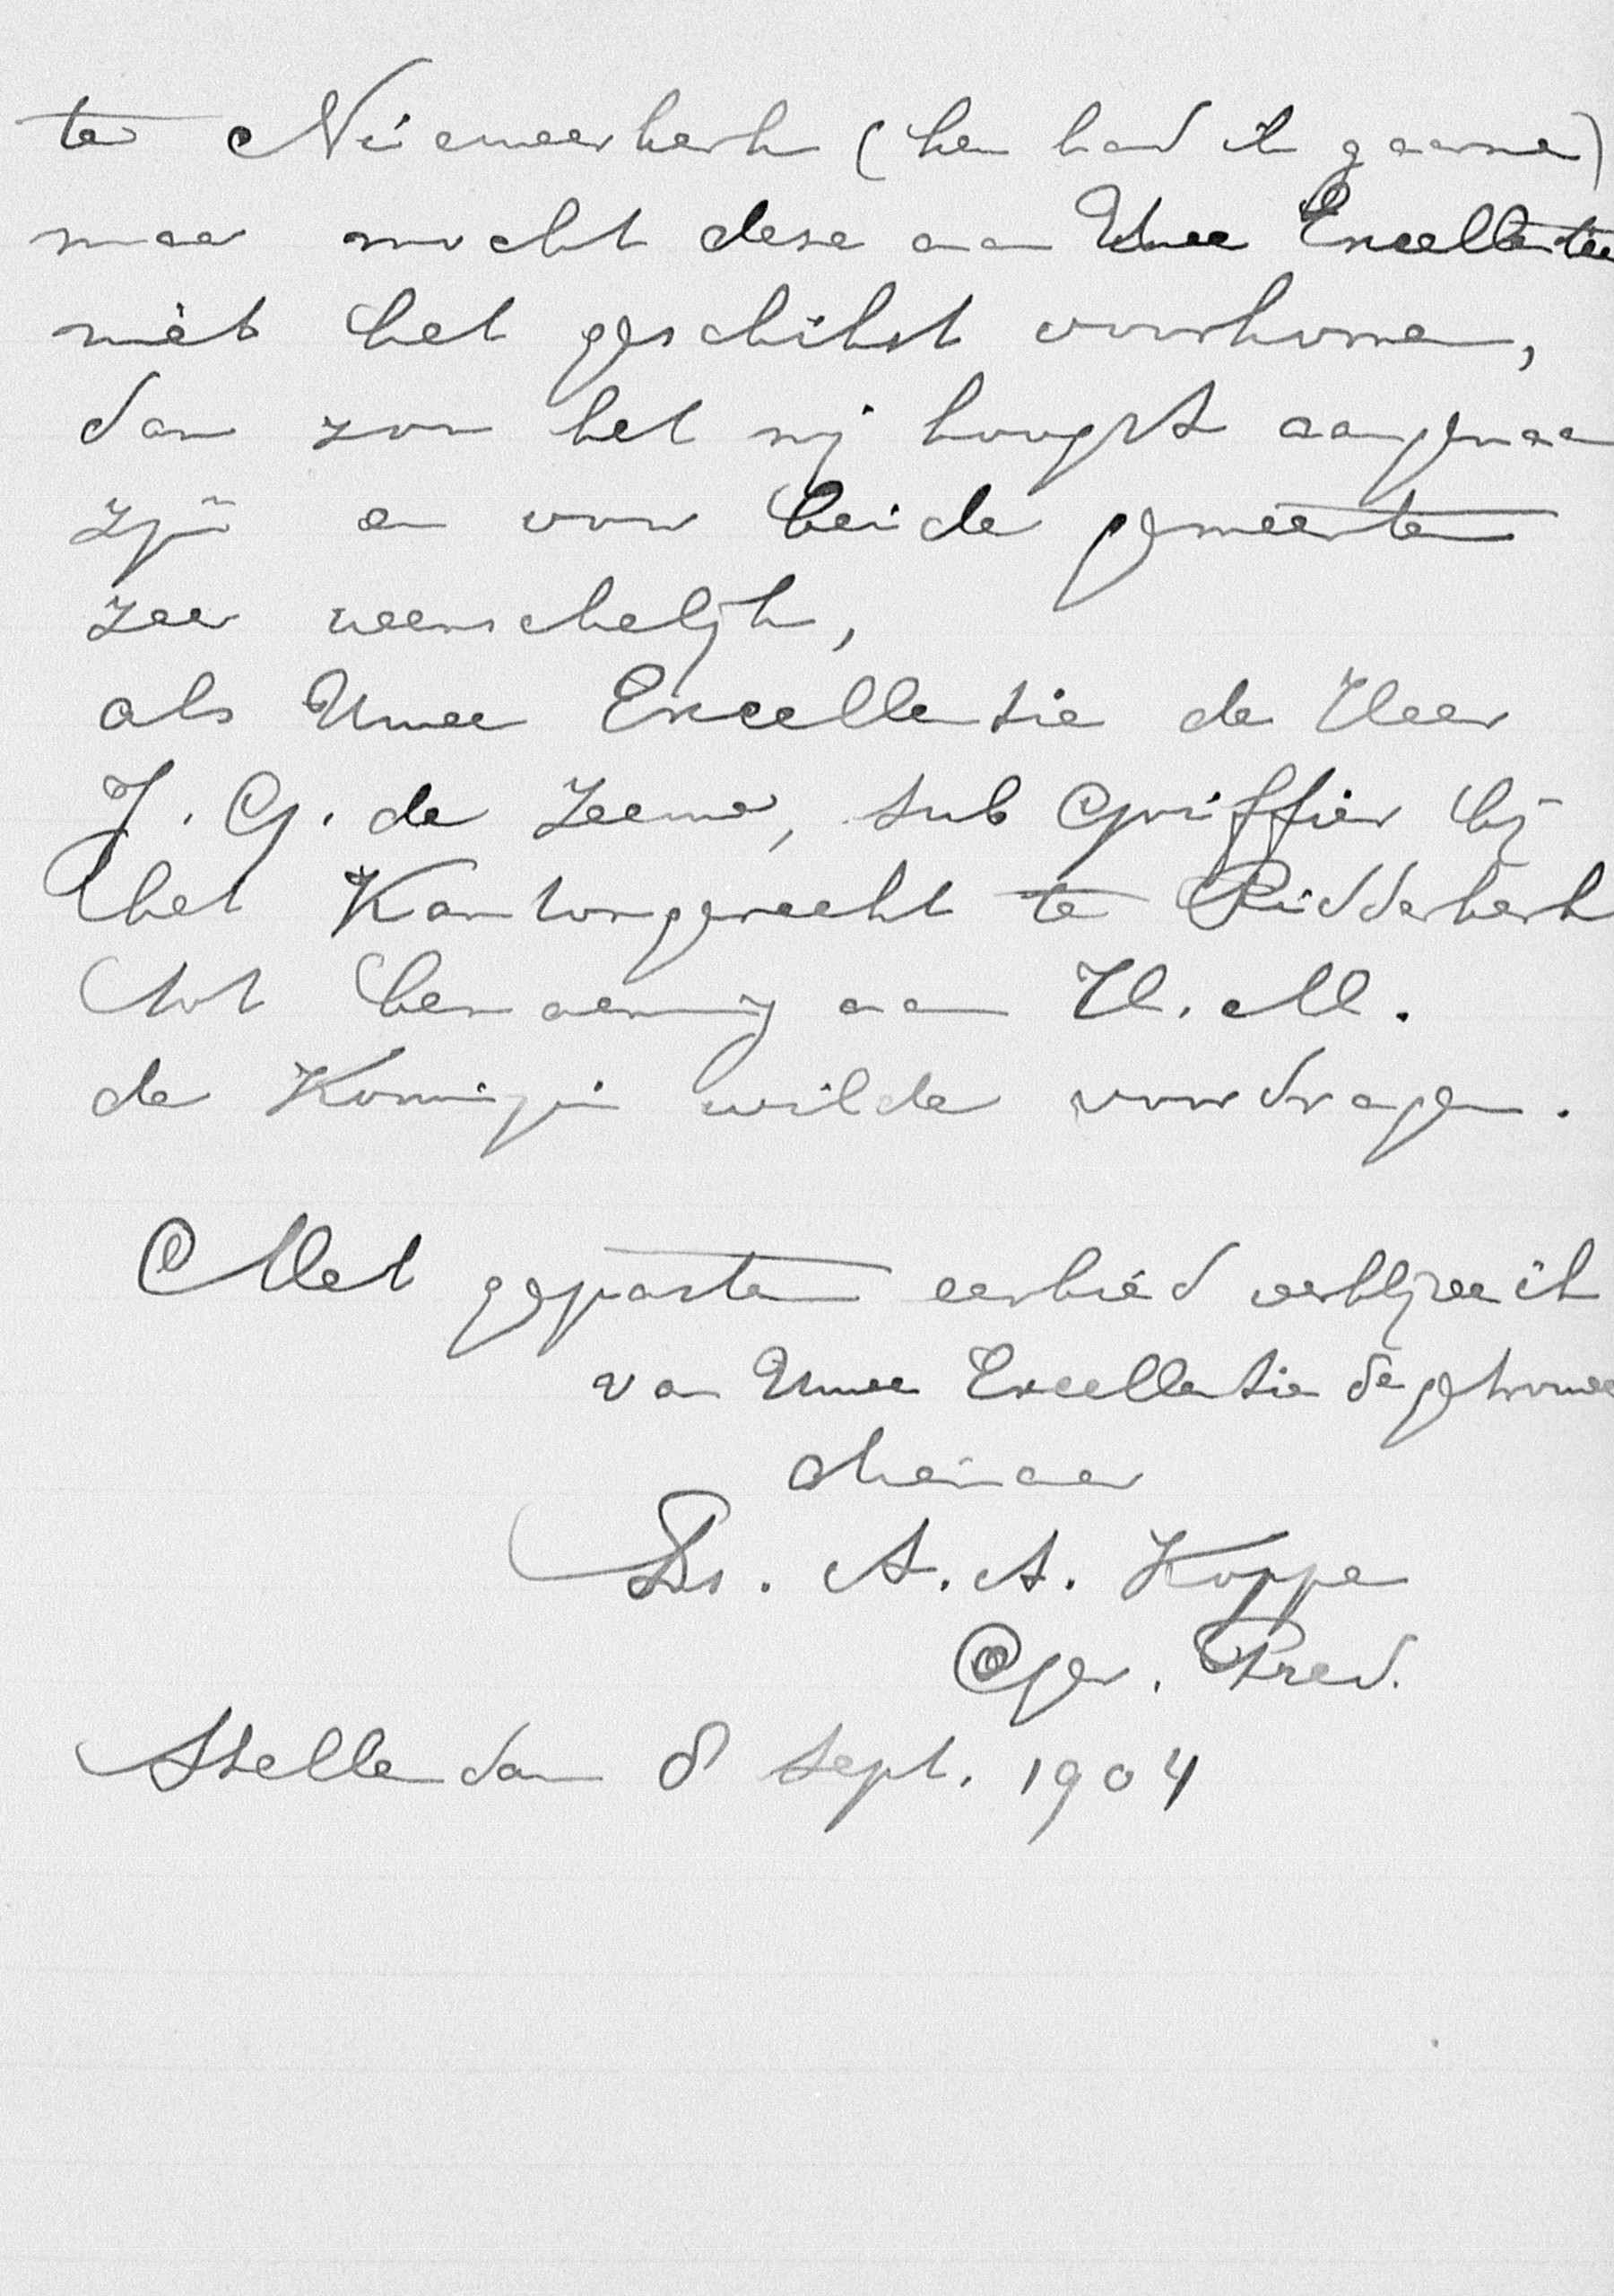 te Nieuweerkerk (hem had ik gaarne)
maar mocht deze aan Uwee Excellentie
niet het geschikst voorkomen,
dan zou het mij hoogst aangenaam
zijn en voor beide gemeenten
zeer wenschelijk,
als Uwee Excellentie de Heer
J. G. de Zeeuw, sub Griffier bij
het Kantongerecht te Ridderkerk
tot benoeming aan H. M.
de Koningin wilde voordragen.
Met gepasten eerbied verblijve ik
van Uwee Excellentie de getrouwe
dienaar
Ds. A. A. Koppe
Ger. Pred.
Stellendam 8 Sept. 1904